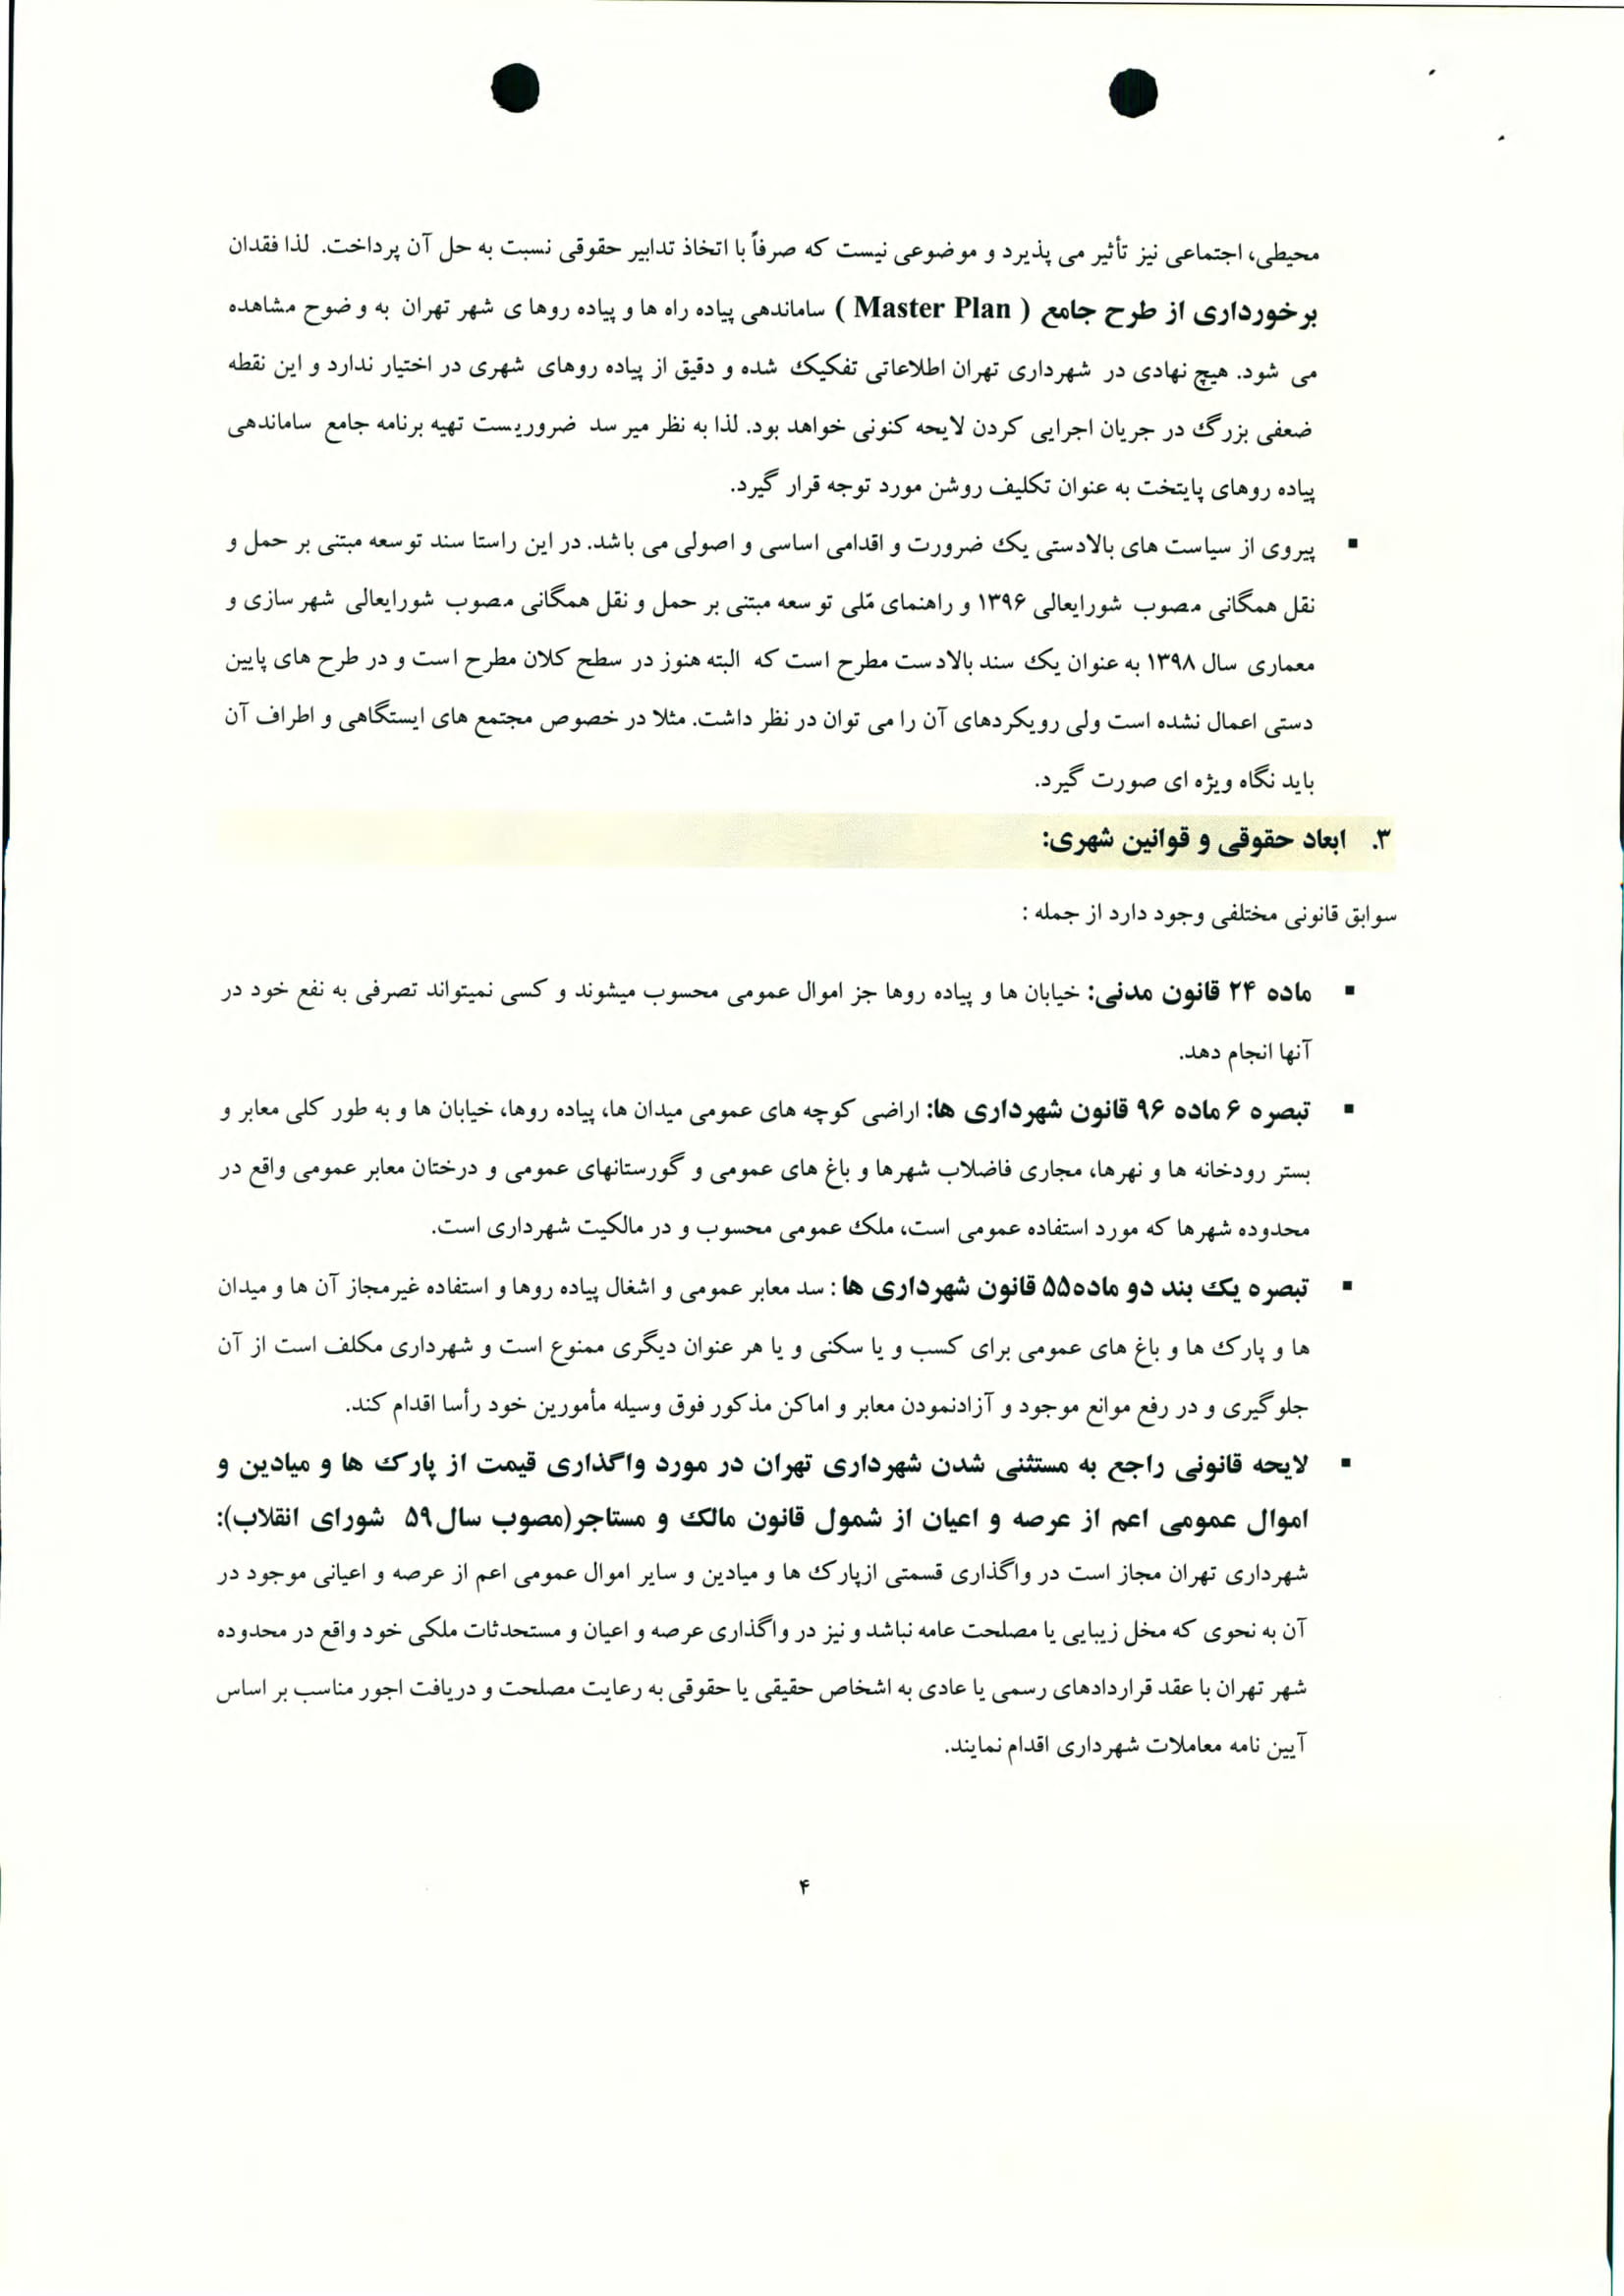 محیطی، اجتماعی نیز تأثیر می پذیرد و موضوعی نیست که صرفاً با اتخاذ تدابیر حقوقی نسبت به حل آن پرداخت. لذا فقدان
برخورداری از طرح جامع ( Master Plan ) ساماندهی پیاده راه ها و پیاده روها ی شهر تهران به وضوح مشاهده
می شود. هیچ نهادی در شهرداری تهران اطلاعاتی تفکیک شده و دقیق از پیاده روهای شهری در اختیار ندارد و این نقطه
ضعفی بزرگ در جریان اجرایی کردن لایحه کنونی خواهد بود. لذا به نظر میر سد ضروریست تهیه برنامه جامع ساماندهی
پیاده روهای پایتخت به عنوان تکلیف روشن مورد توجه قرار گیرد.
▪ پیروی از سیاست های بالادستی یک ضرورت و اقدامی اساسی و اصولی می باشد. در این راستا سند توسعه مبتنی بر حمل و
نقل همگانی مصوب شورایعالی ۱۳۹۶ و راهنمای مّلی توسعه مبتنی بر حمل و نقل همگانی مصوب شورایعالی شهرسازی و
معماری سال ۱۳۹۸ به عنوان یک سند بالادست مطرح است که البته هنوز در سطح کلان مطرح است و در طرح های پایین
دستی اعمال نشده است ولی رویکردهای آن را می توان در نظر داشت. مثلا در خصوص مجتمع های ایستگاهی و اطراف آن
باید نگاه ویژه ای صورت گیرد.
۳. ابعاد حقوقی و قوانین شهری:
سوابق قانونی مختلفی وجود دارد از جمله :
▪ ماده ۲۴ قانون مدنی: خیابان ها و پیاده روها جز اموال عمومی محسوب میشوند و کسی نمیتواند تصرفی به نفع خود در
آنها انجام دهد.
▪ تبصره ۶ ماده ۹۶ قانون شهرداری ها: اراضی کوچه های عمومی میدان ها، پیاده روها، خیابان ها و به طور کلی معابر و
بستر رودخانه ها و نهرها، مجاری فاضلاب شهرها و باغ های عمومی و گورستانهای عمومی و درختان معابر عمومی واقع در
محدوده شهرها که مورد استفاده عمومی است، ملک عمومی محسوب و در مالکیت شهرداری است.
▪ تبصره یک بند دو ماده۵۵ قانون شهرداری ها : سد معابر عمومی و اشغال پیاده روها و استفاده غیرمجاز آن ها و میدان
ها و پارک ها و باغ های عمومی برای کسب و یا سکنی و یا هر عنوان دیگری ممنوع است و شهرداری مکلف است از آن
جلوگیری و در رفع موانع موجود و آزادنمودن معابر و اماکن مذکور فوق وسیله مأمورین خود رأسا اقدام کند.
▪ لایحه قانونی راجع به مستثنی شدن شهرداری تهران در مورد واگذاری قیمت از پارک ها و میادین و
اموال عمومی اعم از عرصه و اعیان از شمول قانون مالک و مستاجر(مصوب سال۵۹ شورای انقلاب):
شهرداری تهران مجاز است در واگذاری قسمتی ازپارک ها و میادین و سایر اموال عمومی اعم از عرصه و اعیانی موجود در
آن به نحوی که مخل زیبایی یا مصلحت عامه نباشد و نیز در واگذاری عرصه و اعیان و مستحدثات ملکی خود واقع در محدوده
شهر تهران با عقد قراردادهای رسمی یا عادی به اشخاص حقیقی یا حقوقی به رعایت مصلحت و دریافت اجور مناسب بر اساس
آیین نامه معاملات شهرداری اقدام نمایند.
۴